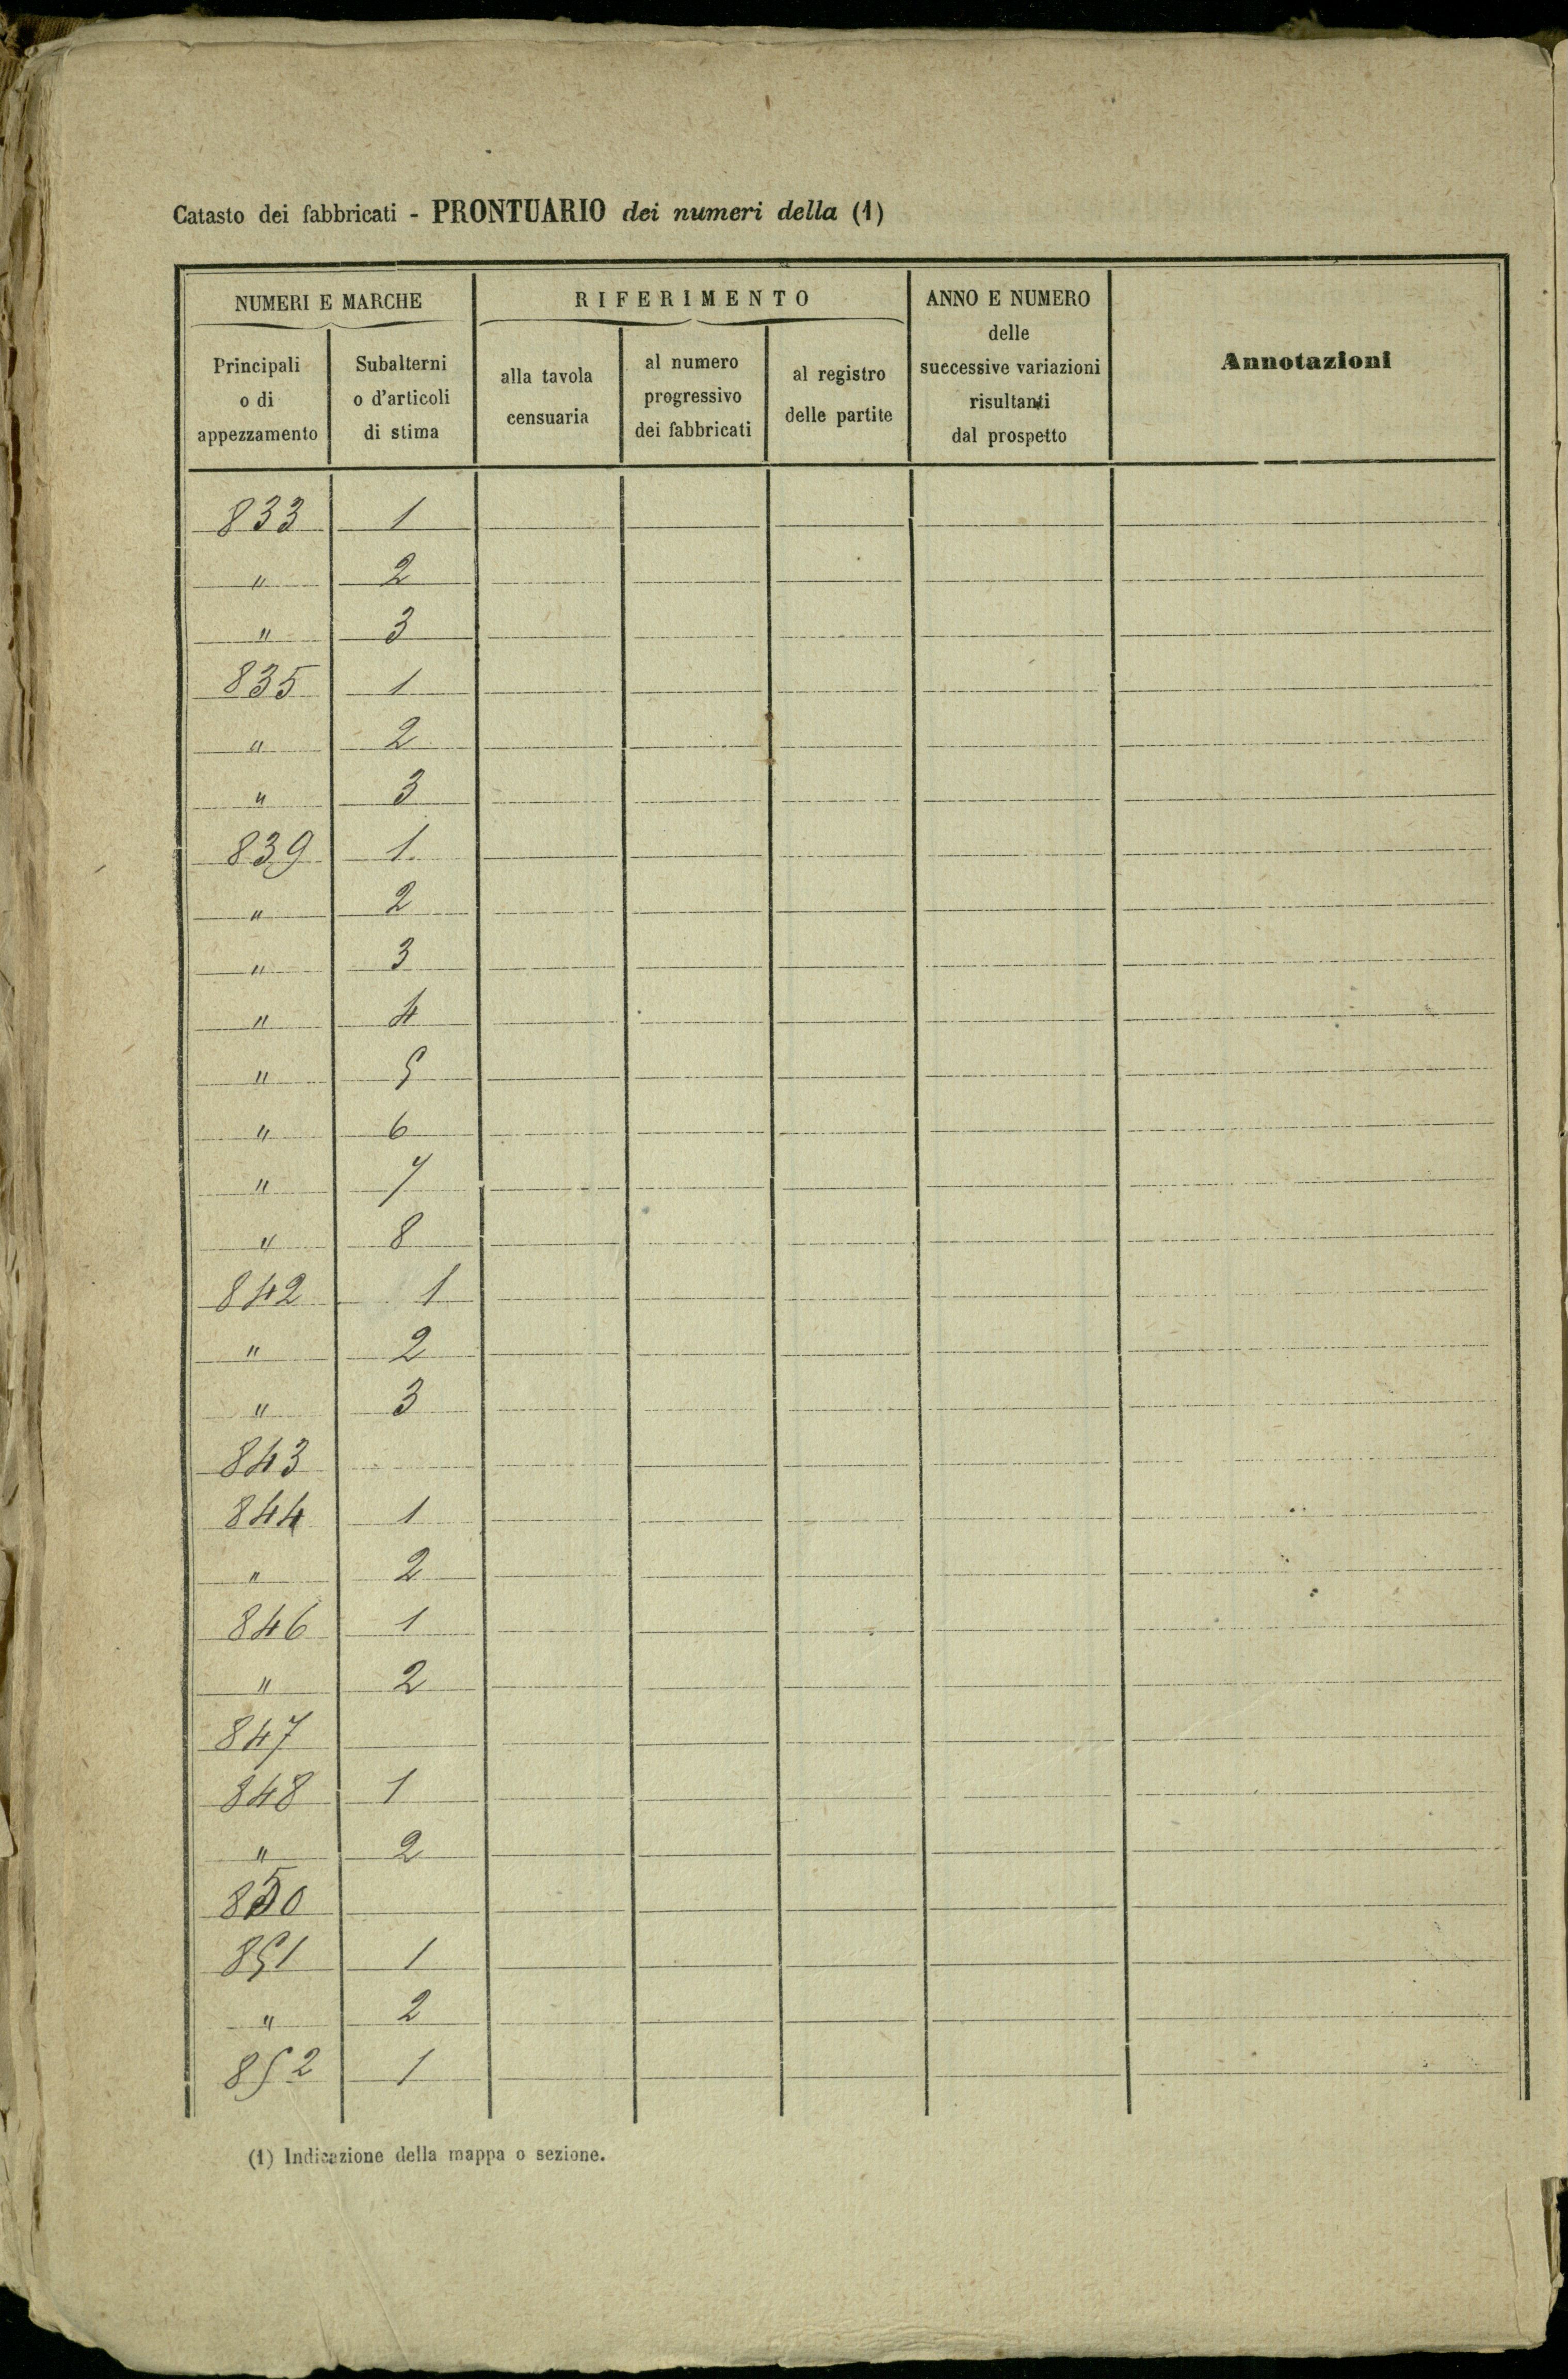 Catasto dei fabbricati - PRONTUARIO dei numeri della (1)
NUMERI E MARCHE
RIFERIMENTO
ANNO E NUMERO
delle
successive variazioni
risultanti
dal prospetto
Annotazioni
Principali
o di
appezzamento
Subalterni
o d'articoli
di stima
alla tavola
censuaria
al numero
progressivo
dei fabbricati
al registro
delle partite
833 1
" 2
" 3
835 1
" 2
" 3
839 1
" 2
" 3
" 4
" 5
" 6
" 7
" 8
842 1
" 2
" 3
843
844 1
" 2
846 1
" 2
847
848 1
" 2
850
851 1
" 2
852 1
(1) Indicazione della mappa o sezione.